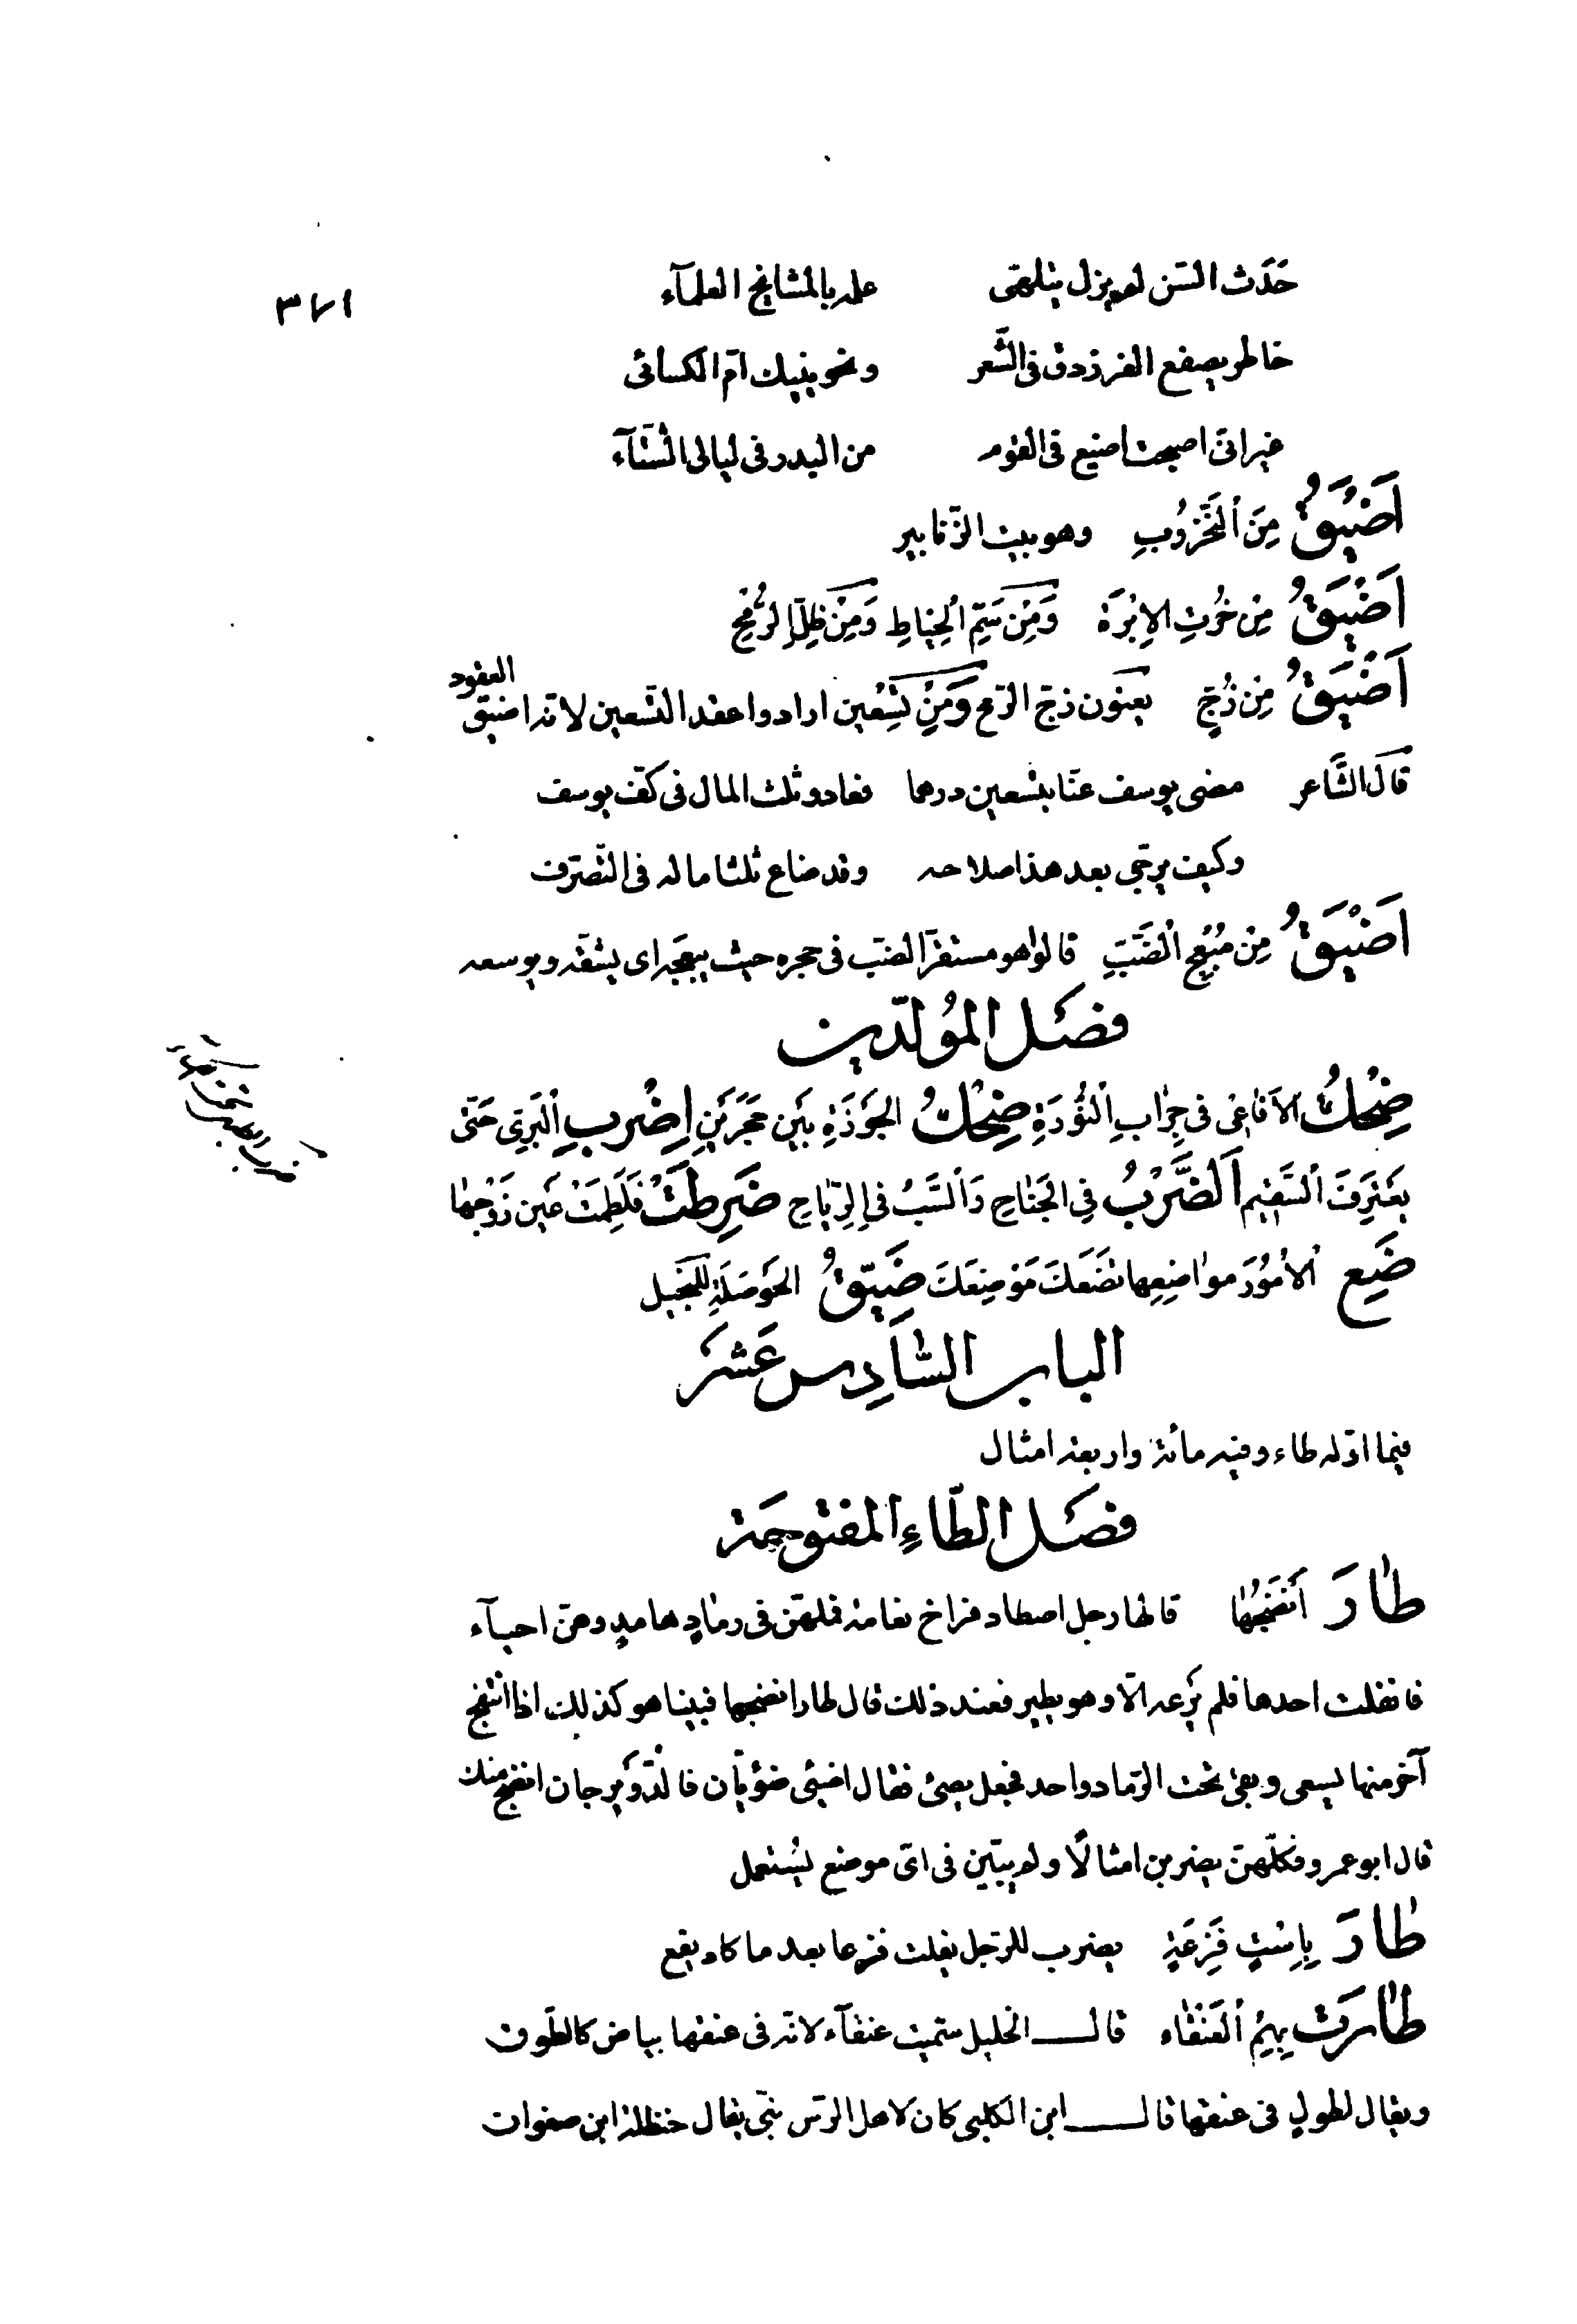 ٣٧١
حَدَث السّن لم يزل يتلهّى علمه بالمشايخ العلمآء
خاطر يصفع الفرزدق فى الشّعر ونحو ينيك امّ الكسائى
غير انّى اصبحت اضيع فى القوم من البدر فى ليالى الشّتآء
اَضْيَقُ مِنَ اُلنَّخْرُوبِ وهو بيت الزّنابير
اَضْيَقُ مِنْ خُرْتِ الاِبْرَة وَمِنْ سَمِّ الخِيٰاطِ وَمِنْ ظِلِّ الرُّمْحِ
اَضْيَقُ مِنْ زُجٍّ يعنون زجّ الرّمح وَمِنْ تِسْعين ارادوا عقد التّسعين لانّه اضيق العقود
قال الشّاعر مضى يوسف عنّا بتسعين درهما فعاد وثلث المال فى كفّ يوسف
وكيف يرتجى بعد هذا صلاحه وقد ضاع ثلثا ماله فى التّصرّف
اَضْيَقُ مِنْ مَبْعَجِ اُلضَّبِّ قالوا هو مستقرّ الضبّ فى جحره حيث يبعجه اى يشقّه ويوسعه
فصَل المُولّدين
ضِحْكُ الاَفاعى فى جِرٰابِ اُلنُّورَةِ ضِحْكُ الجَوْزَةِ بَيْن حَجَرَيْنِ اِضْربِ اُلبَرِى حَتّى
يَعْتَرِفَ اُلسَّقيم اَلضَّرْبُ فِى الجَنٰاحِ وَاُلسَّبُ فى الرِّيٰاحِ ضَرِطَتْ فَلَطِمَتْ عَين زَوْجِهٰا
ضَعِ اُلأُمُورَ موٰاضِعِها تَضَعْكَ مَوْضِعَكَ ضَيّقُ الحَوصَلَةِ للبَخيل
الباب السَّادِس عَشَر
فيما اوّله طاء وفيه مائة واربعة امثال
فصَل الطّاءِ المفتوحَة
طٰارَ أنضَجُهٰا قالها رجل اصطاد فراخ نعامة فملّهنّ فى رمٰادٍ هامدٍ وهنّ احيآء
فانفلت احدها فلم يَرُعه الّا وهو يطير فعند ذلك قال طار انضجها فبينا هو كذلك اذا انتفج
آخر منها يسعى وبقى تحت الرّماد واحد فجعل يصئ فقال اصئى صؤيّان فالدّويرجان انضج منك
قال ابو عمرو فكلّهنّ يضربن امثالًا ولم يبيّن فى اىّ موضع يُستعمل
طٰارَ بِاِسْتٍ فَزِعَةٍ يضرب للرّجل يفلت فزعا بعد ما كاد يقع
طٰارَت بِهِمُ اُلعَنْقٰاء قال الخليل سمّيت عنقآء لانّه فى عنقها بياض كالطّوق
ويقال لطولٍ فى عنقها قال ابن الكلبى كان لاهل الرّس نبّى يقال حنظلة ابن صفوان